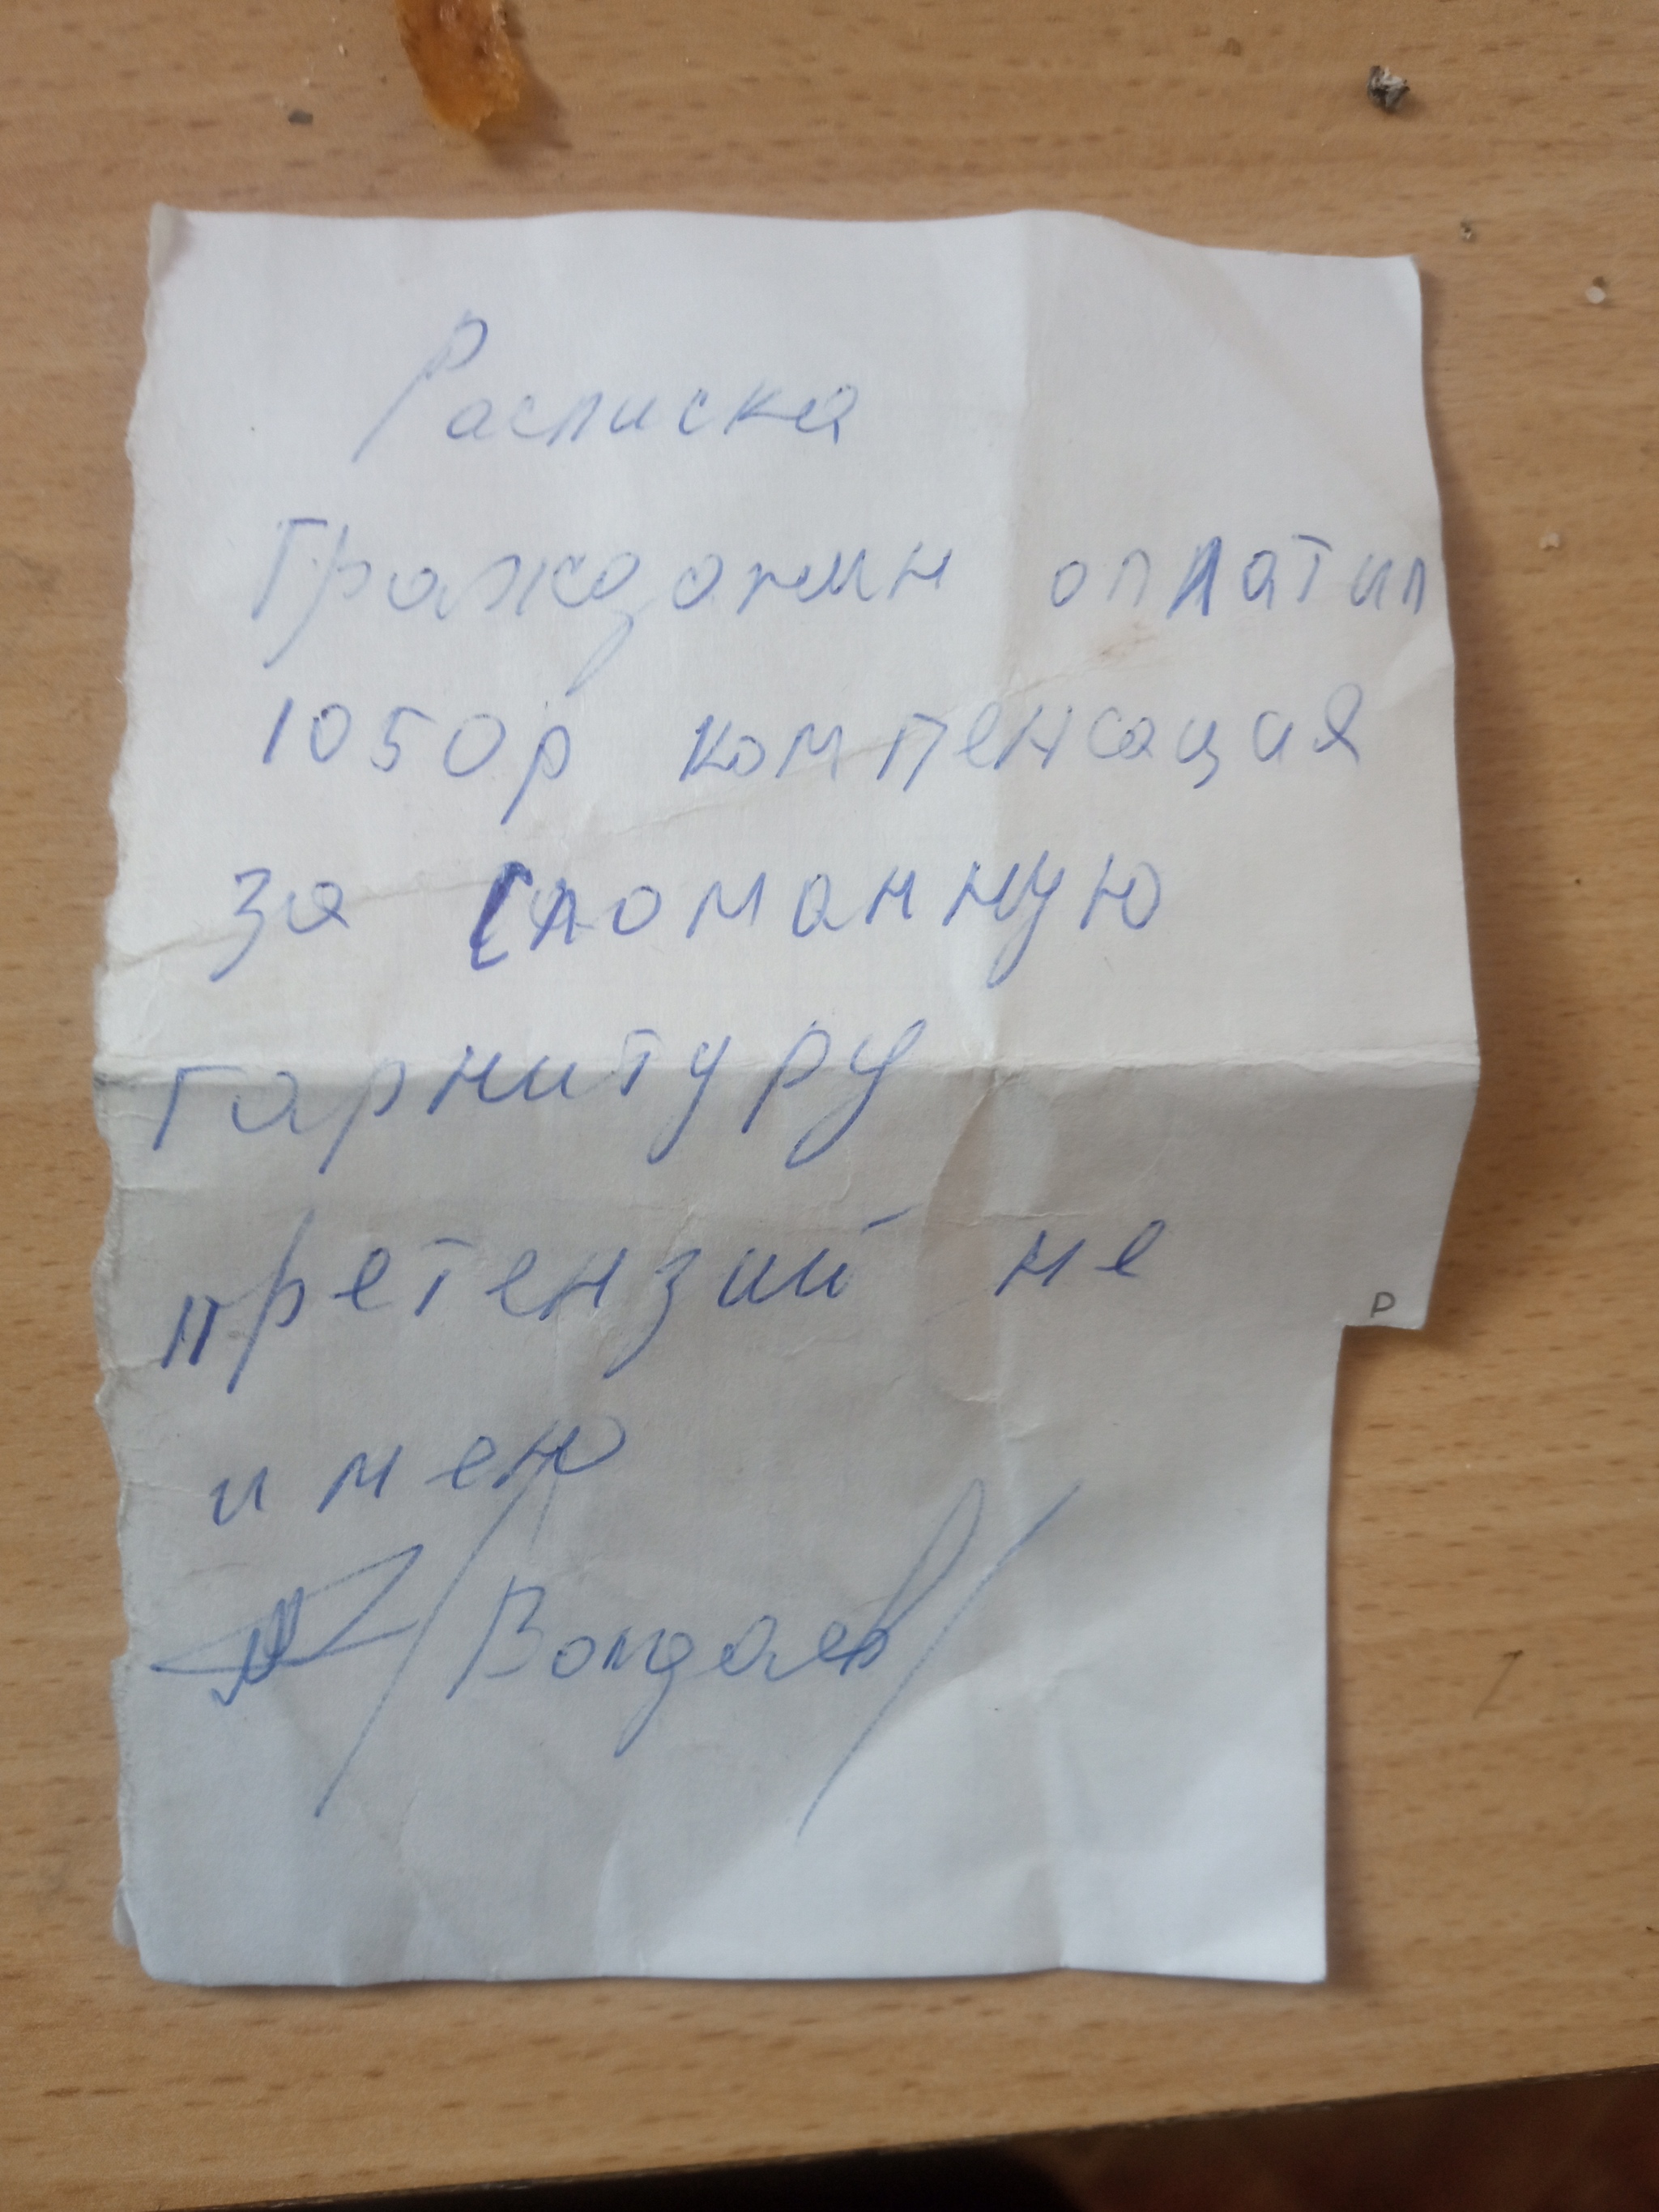 Расписка
Гражданин оплатил
1050р компенсация
за сломанную
гарнитуру
претензий не
р
имею